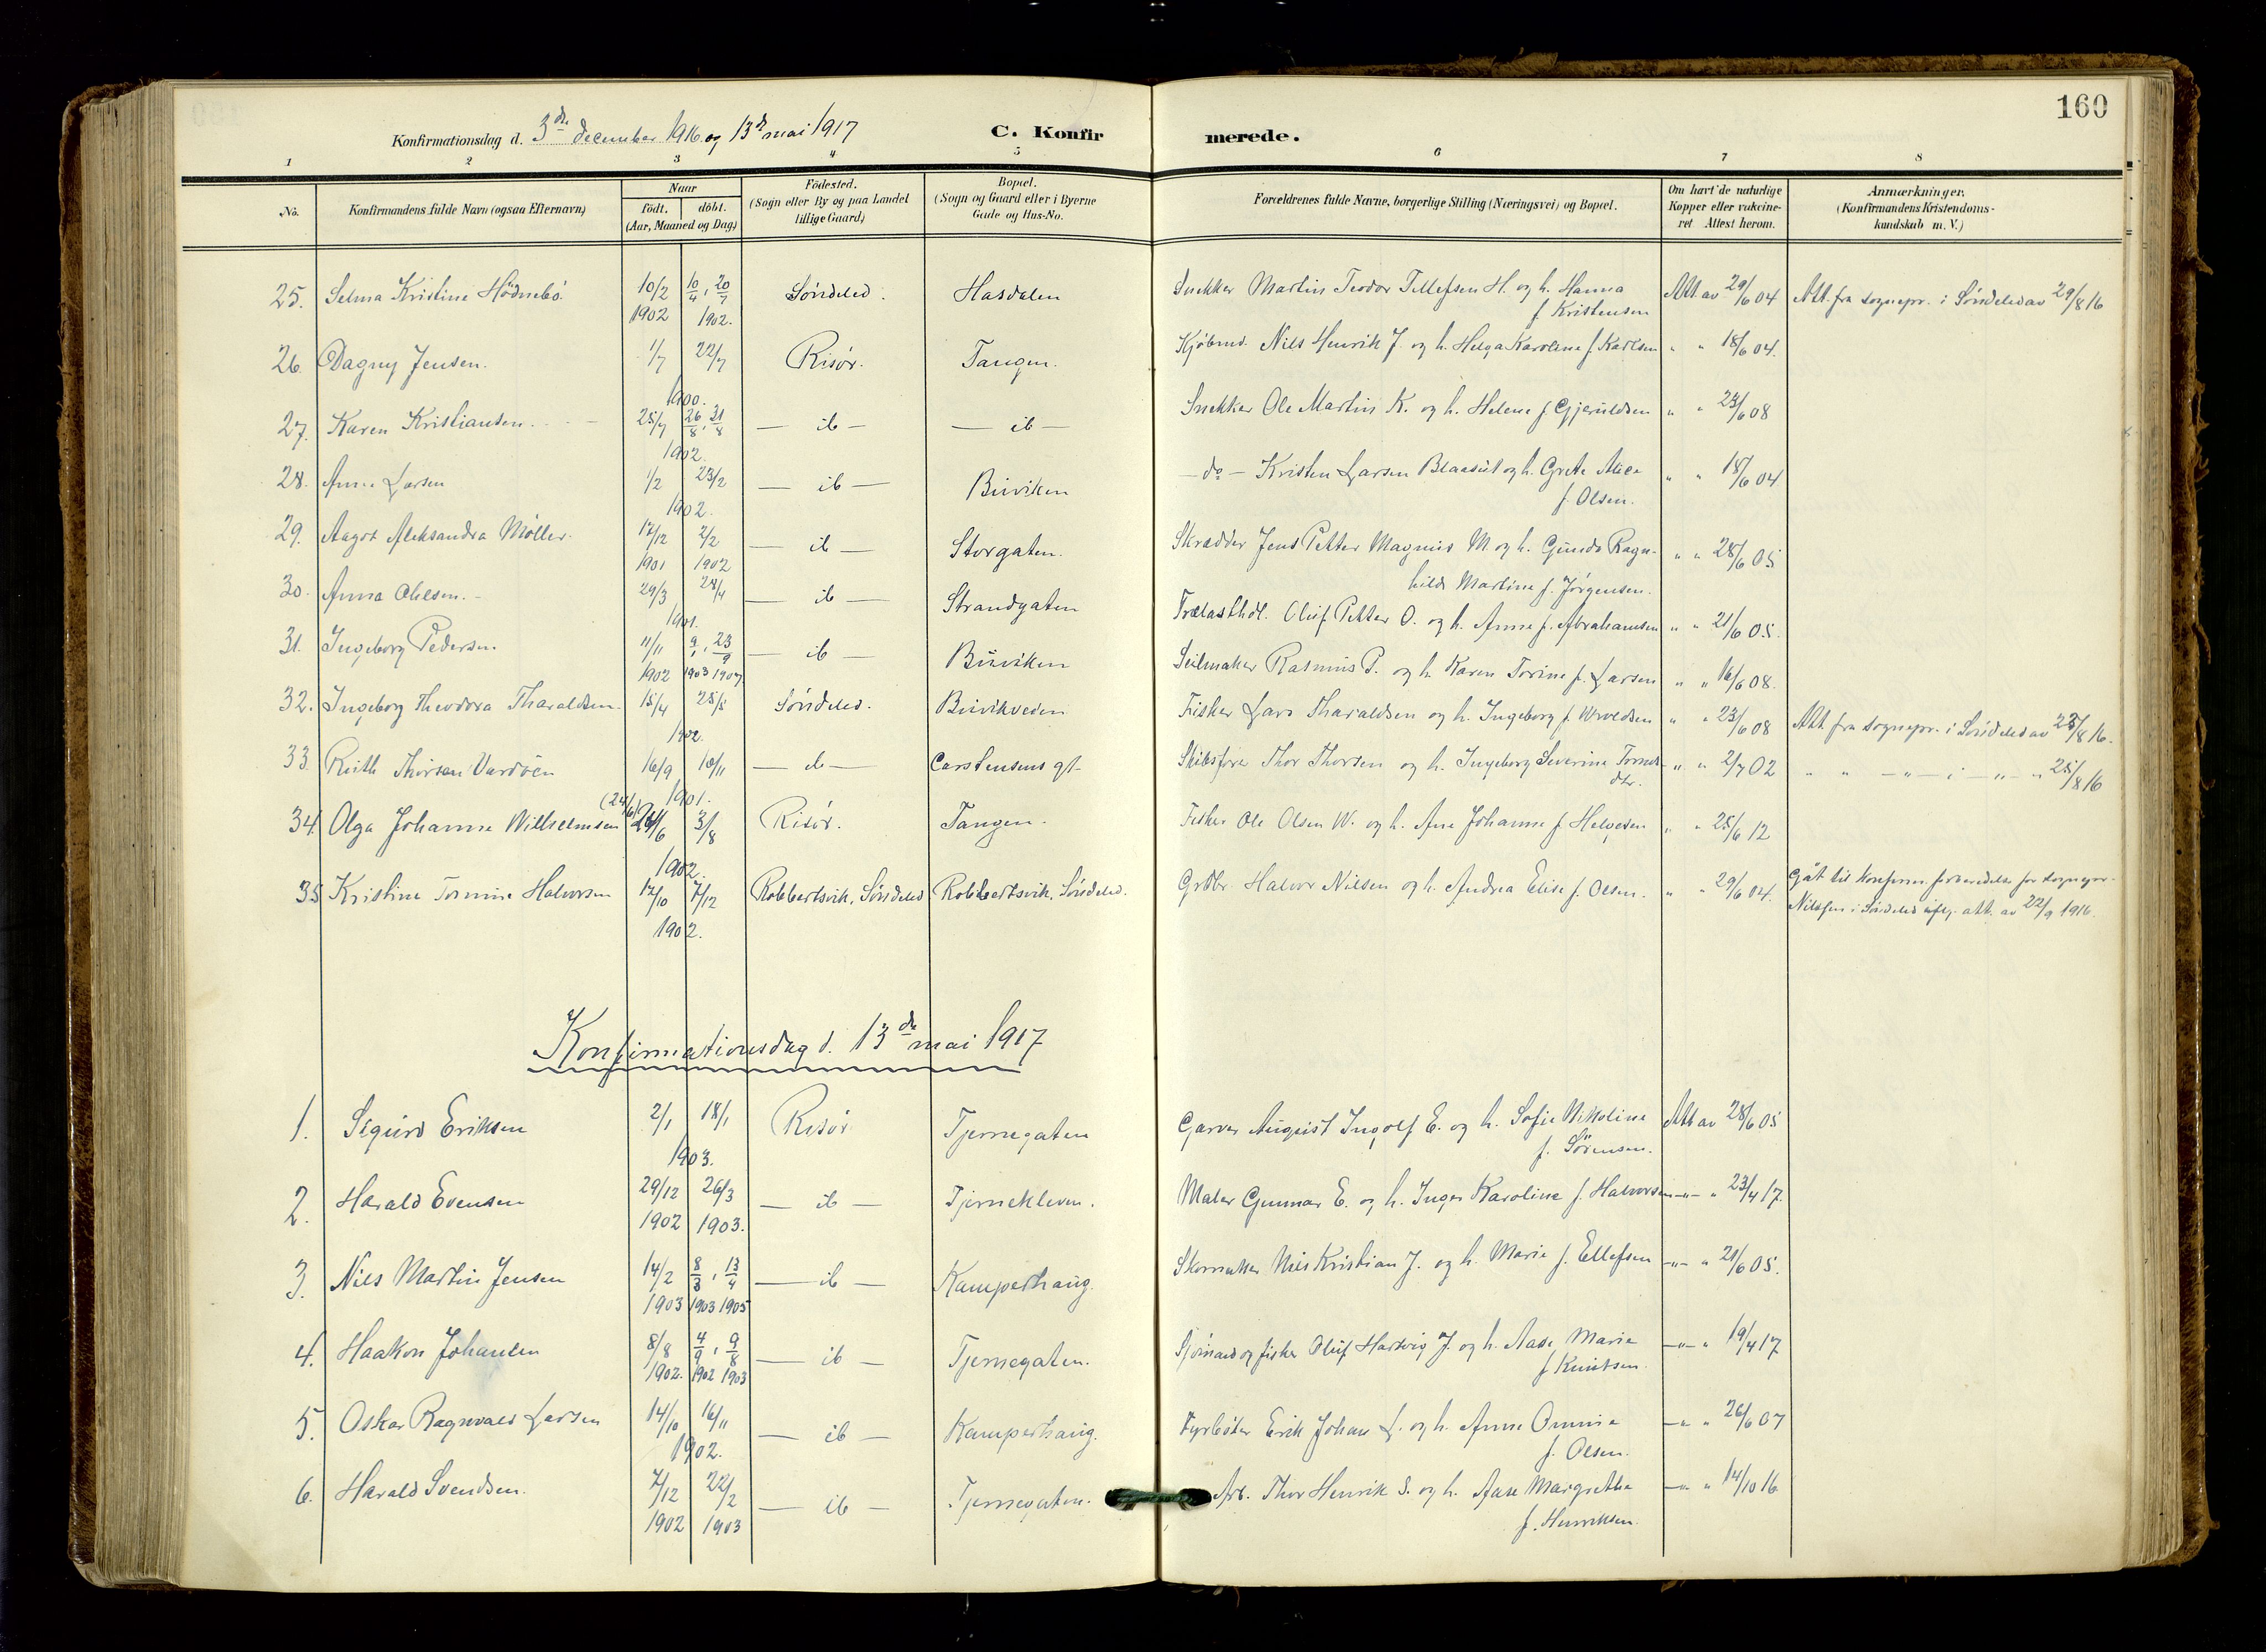 160
Konfirmationsdag d. 3de december 1916 og 13de mai 1917
C. Konfirmerede.
1 2 3 4 5 6 7 8
No. Konfirmandens fulde Navn (ogsaa Efternavn) Naar født. døbt. (Aar, Maaned og Dag) Fødested. (Sogn eller By og paa Landet tillige Gaard) Bopæl. (Sogn og Gaard eller i Byerne Gade og Hus-No. Forældrenes fulde Navne, borgerlige Stilling (Næringsvei) og Bopæl. Om havt de naturlige Kopper eller vakcineret Attest herom. Anmærkninger. (Konfirmandens Kristendomskundskab m. V.)
25. Selma Kristine Hödnebö. 10/2 1902 10/4, 20/7 1902. Söndeled. Hasdalen Snekker Martin Teodor Tellefsen H. og h. Hanna f. Kristensen Att. av 29/6 04 Att. fra sognepr. i Söndeled av 29/8 16
26. Dagny Jensen. 1/7 22/7 1900. Risör. Tangen. Kjöbmd. Nils Henrik J. og h. Helga Karoline f. Karlsen " " 18/6 04.
27. Karen Kristiansen. 25/7 26/8, 31/8 1902. — ib — — ib — Snekker Ole Martin K. og h. Helene f. Gjeruldsen " " 23/6 08
28. Anne Larsen 1/2 23/2 1902. — ib — Buviken — do — Kristen Larsen Blaasut og h. Grete Alice f. Olsen. " " 18/6 04
29. Aagot Aleksandra Möller. 17/12 1901 2/2 1902 — ib — Storgaten. Skrædder Jens Petter Magnus M. og h. Gunda Ragnhild Martine f. Jörgensen. " " 28/6 05
30. Anna Olsen. 29/3 28/4 1901. — ib — Strandgaten Trælasthdl. Oluf Petter O. og h. Anne f. Abrahamsen " " 21/6 05.
31. Ingeborg Pedersen. 11/11 1902 9/1, 23/9 1903 1907 — ib — Buviken Seilmaker Rasmus P. og h. Karen Torine f. Larsen " " 16/6 08.
32. Ingeborg Theodora Tharaldsen. 15/4 25/5 1902. Söndeled. Buvikveien Fisker Lars Tharaldsen og h. Ingeborg f. " " 23/6 08 Att. fra sognepr. i Söndeled av 23/8 16.
33. Ruth Thorsen Vardöen 16/9 10/11 1901. — ib — Carstensens gt. Skibsförer Thor Thorsen og h. Ingeborg Severine " " 2/7 02 " " — " — i — " — " 25/8 16
34. Olga Johanne Willhelmsen (24/6) 26/6 3/8 1902. Risör. Tangen. Fisker Ole Olsen W. og h. Ane Johanne f. Helgesen " " 25/6 12
35. Kristine Tomine Halvorsen 17/10 7/12 1902. Robbertsvik, Söndeled Robbertsvik, Söndeled. Grdbr. Halvor Nilsen og h. Andrea Elise f. Olsen. " " 29/6 04. Gåt til konfirm. forberedelse for sognepr. Nilssen i Söndeled iflg. att. av 22/9 1916.
Konfirmationsdag d. 13de mai 1917
1. Sigurd Eriksen 2/1 18/1 1903. Risör Tjernegaten Garver August Ingolf E. og h. Sofie Nikoline f. Sörensen. Att av 28/6 05
2. Harald Evensen 29/12 1902 26/3 1903. — ib — Tjernekleven. Maler Gunnar E. og h. Inger Karoline f. Halvorsen —"— " 23/4 17.
3. Nils Martin Jensen 14/2 1903 8/3, 13/4 1903 1905 — ib — Kamperhaug. Skomaker Nils Kristian J. og h. Marie f. Ellefsen —"— " 21/6 05.
4. Haakon Johansen 8/8 1902. 4/9, 9/8 1902 1903 — ib — Tjernegaten. Sjömand og fisker Oluf Hartvig J. og h. Aase Marie f. Knutsen. —"— " 19/4 17
5. Oskar Ragnvald Larsen 14/10 16/11 1902. — ib — Kamperhaug. Fyrböter Erik Johan L. og h. Anne Omine f. Olsen. —"— " 26/6 07
6. Harald Svendsen. 7/12 1902 22/2 1903 — ib — Tjernegaten. Arb. Thor Henrik S. og h. Aase Margrethe f. Henriksen. —"— " 14/10 16